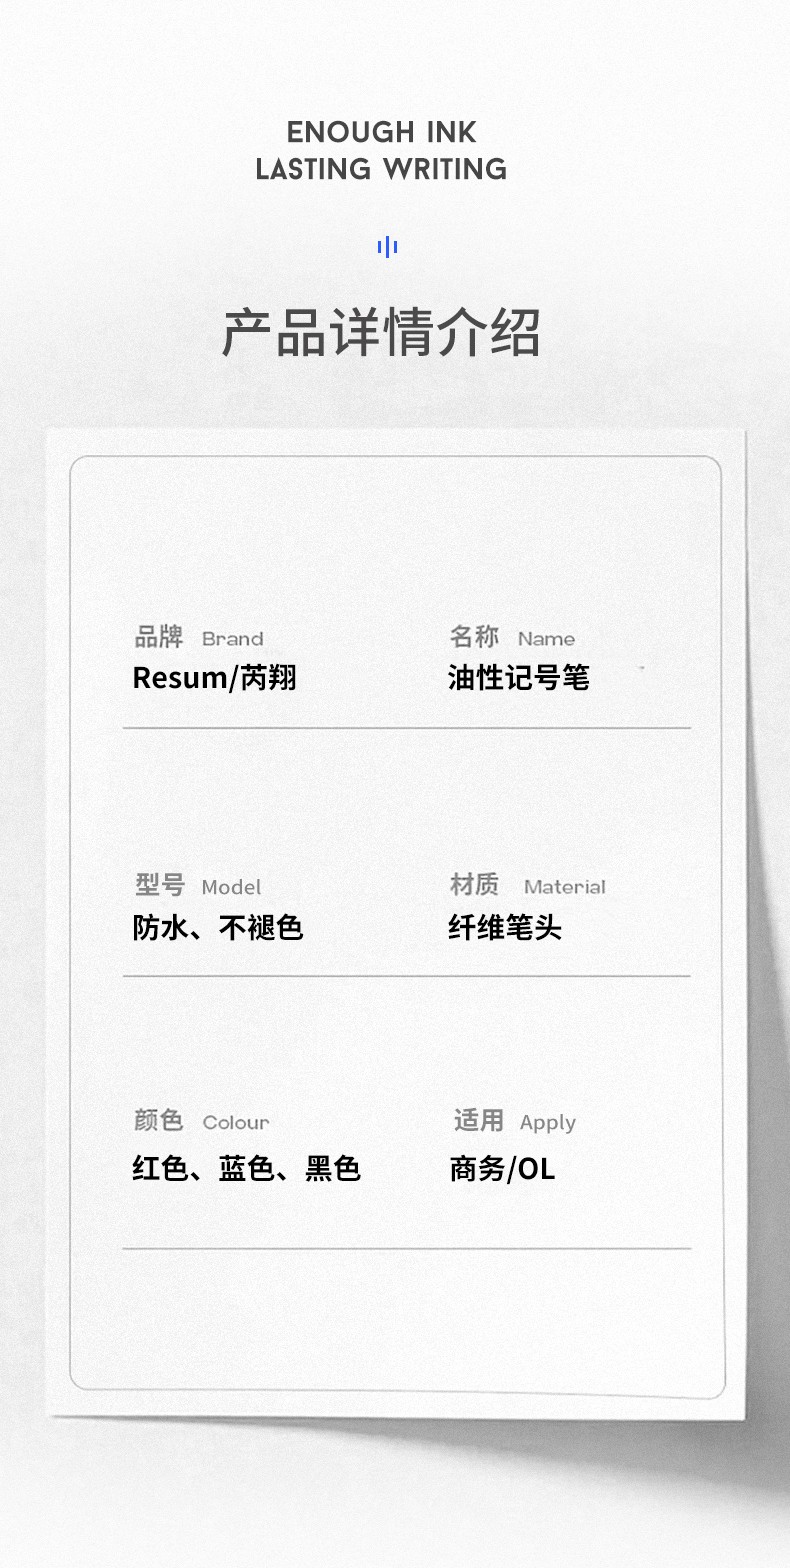 ENOUGH INK
LASTING WRITING
产品详情介绍
品牌 Brand
Resum/芮翔
名称 Name
油性记号笔
型号 Model
防水、不褪色
材质 Material
纤维笔头
颜色 Colour
红色、蓝色、黑色
适用 Apply
商务/OL